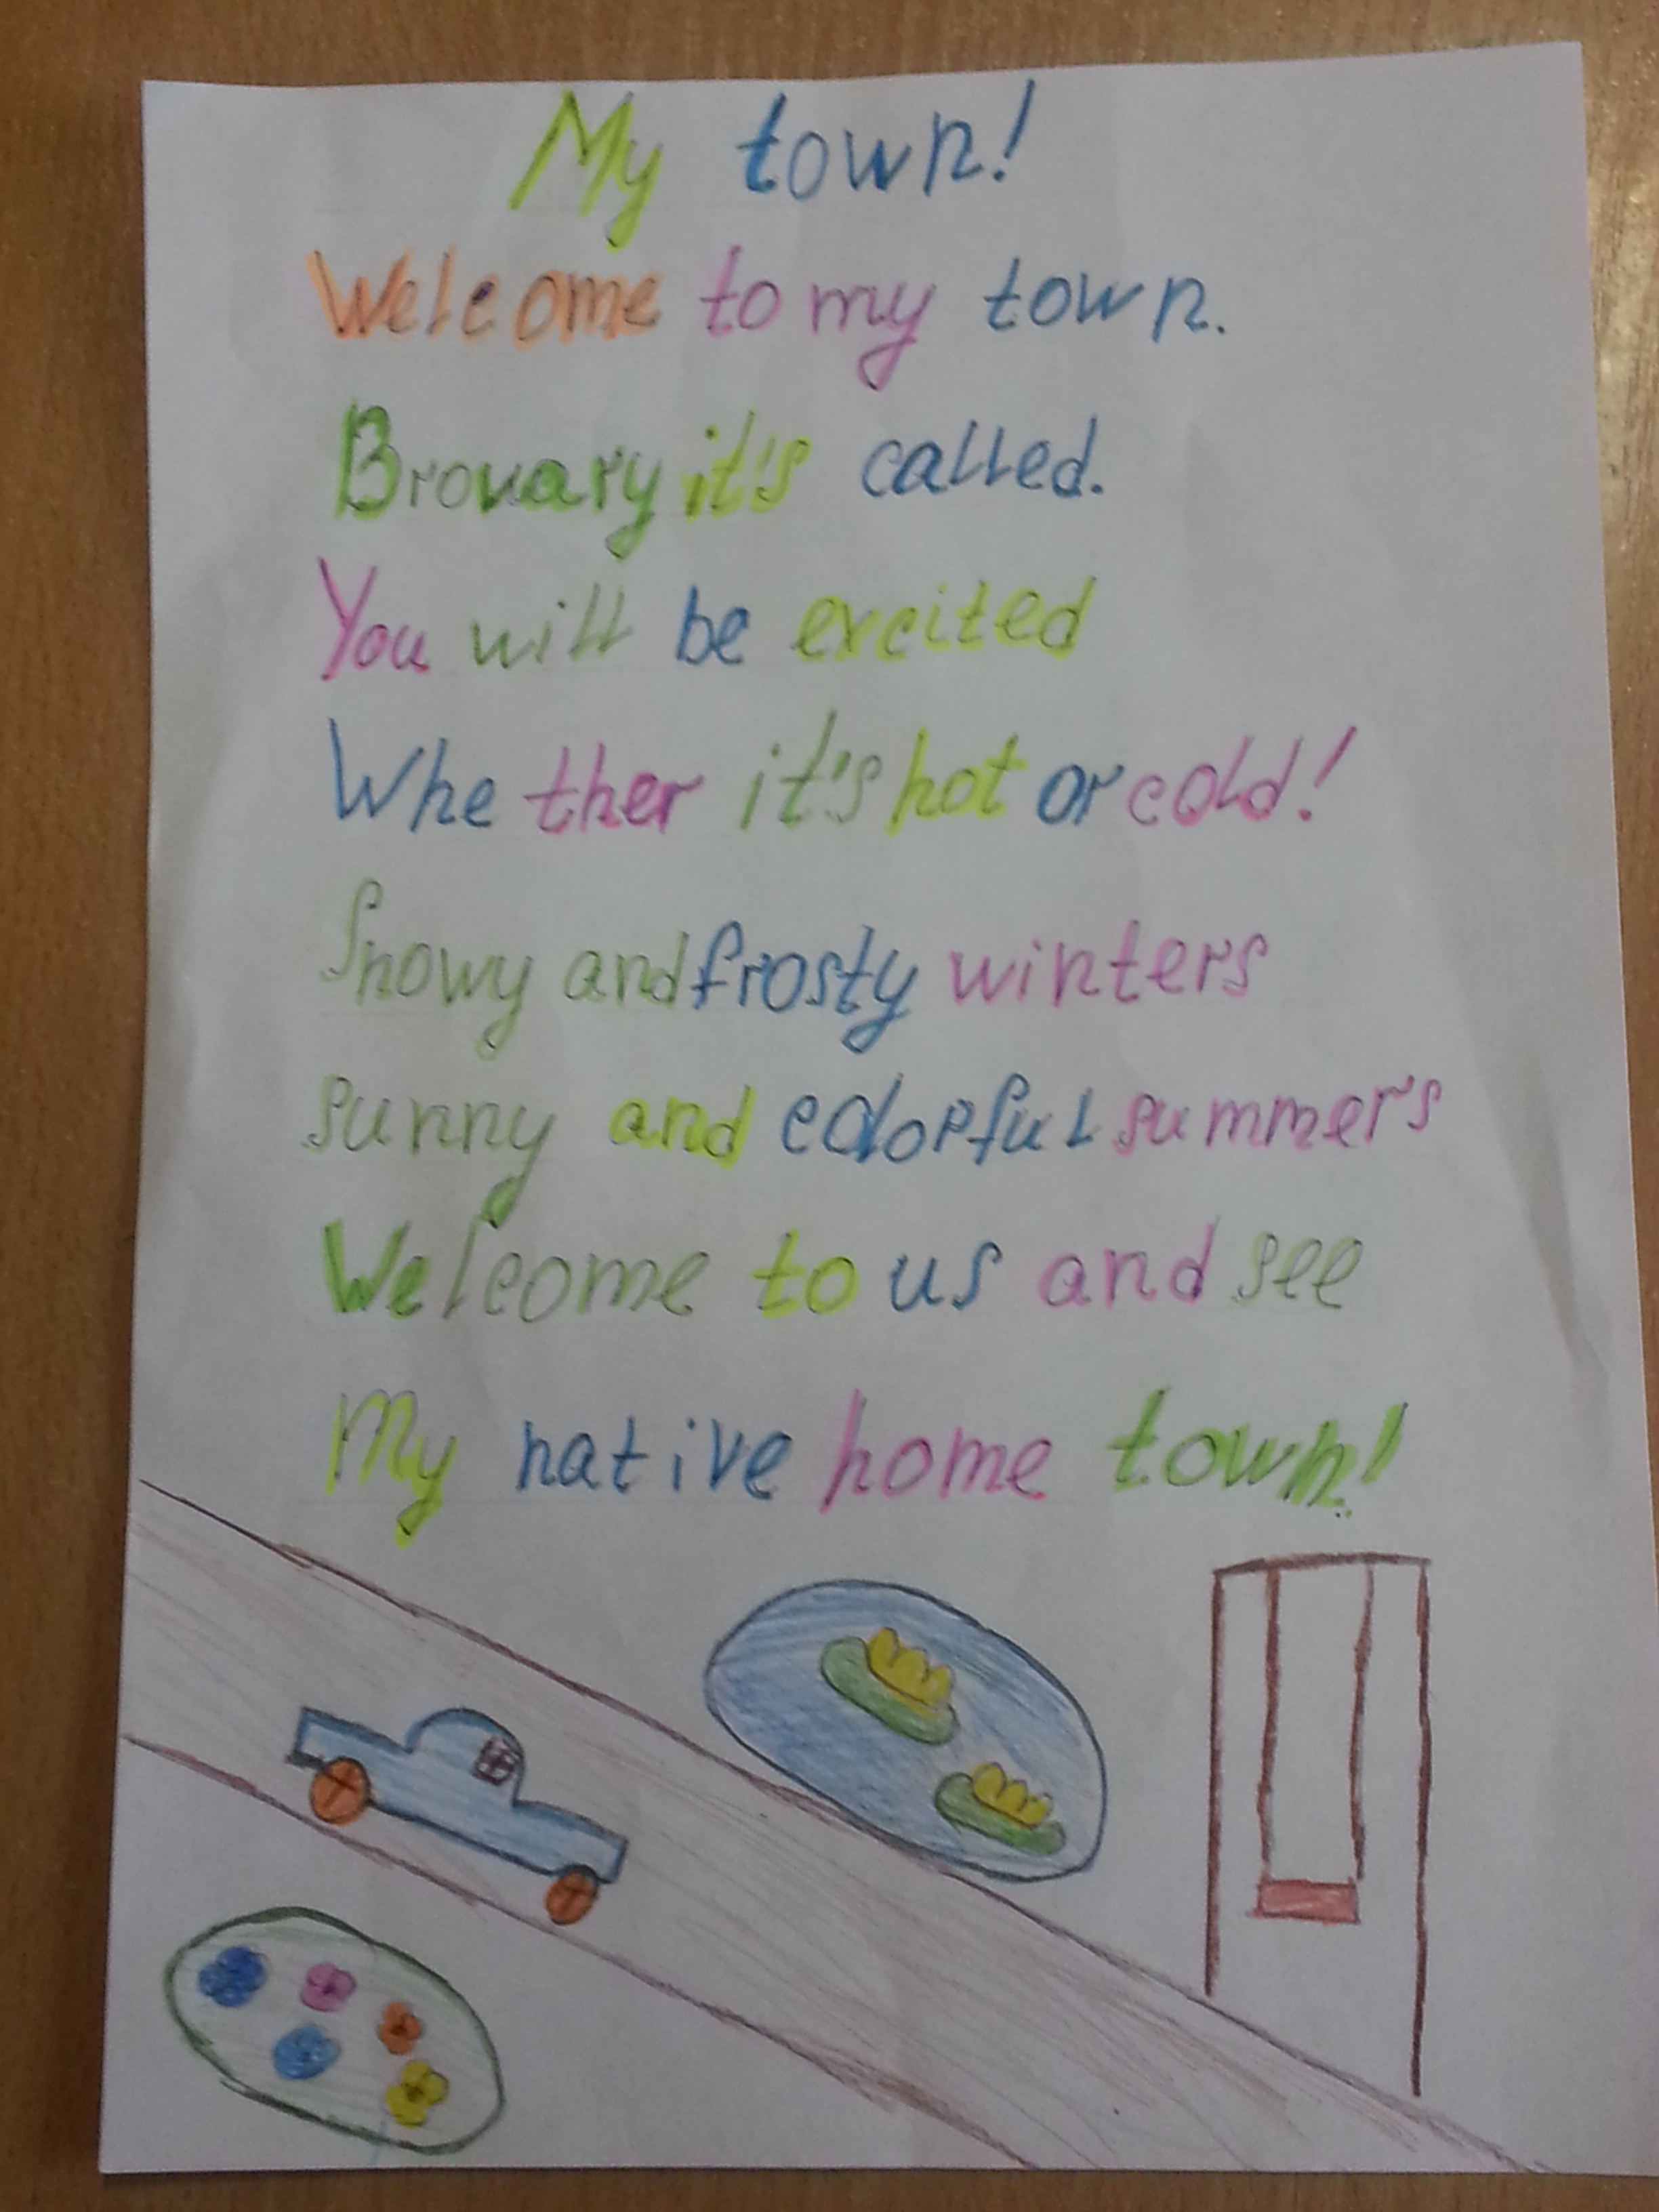 My town!
Welcome to my town.
Brovary it's called.
You will be excited
Whether it's hot or cold!
Snowy and frosty winters
sunny and colorful summers
Welcome to us and see
My native home town!